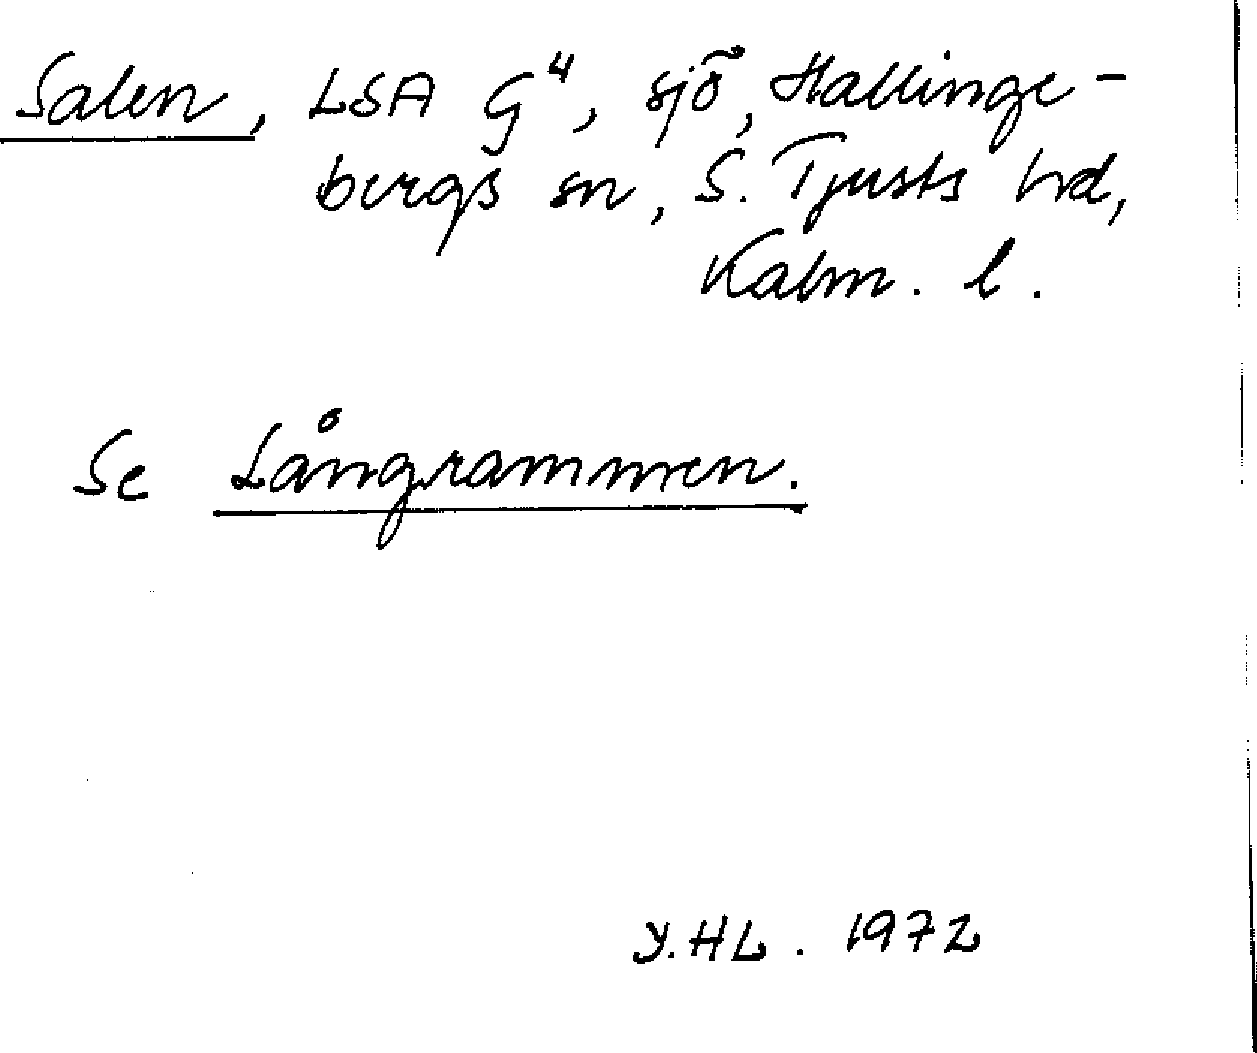 Salen, LSA G⁴, sjö, Hallinge-
bergs sn, S. Tjusts hd,
Kalm. l.
Se Långrammen.
Y.HL. 1972